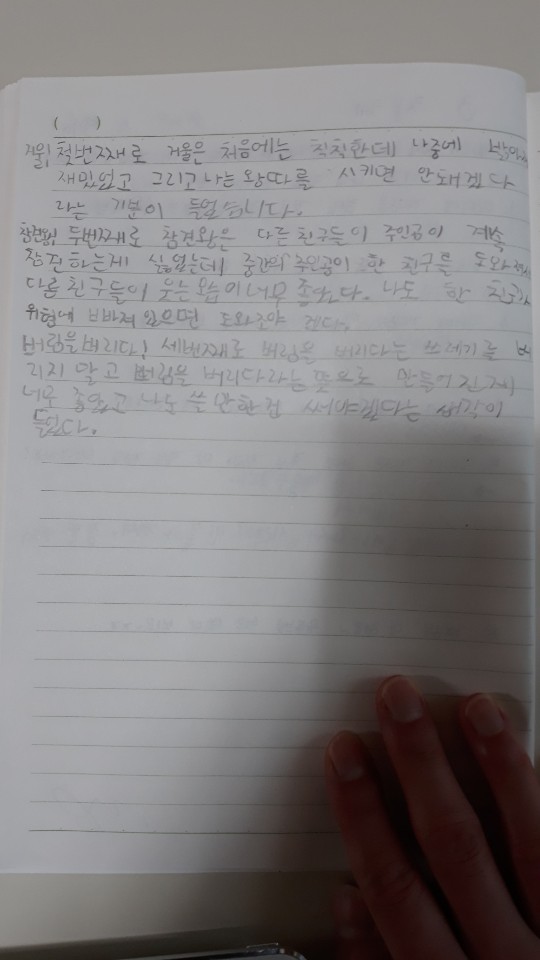 (     )
거울! 첫번째로 거울은 처음에는 칙칙한데 나중에
재밌었고 그리고 나는 왕따를 시키면 안돼겠다
라는 기분이 들었습니다.
참견왕! 두번째로 참견왕은 다른 친구들이 주인공이 계속
참견하는게 싫었는데 중간의 주인공이 한 친구를
다음 친구들이 웃는 모습이 너무 좋았다. 나도 한 친구가
위험에 빠져 있으면 도와조야 겠다.
버림을버리다! 세번째로 버림을 버리다는 쓰레기를 버
리지 말고 버림을 버리다라는 뜻으로 만들어진게
너무 좋았고 나도 쓸 만한 건 써야겠다는 생각이
들었다.